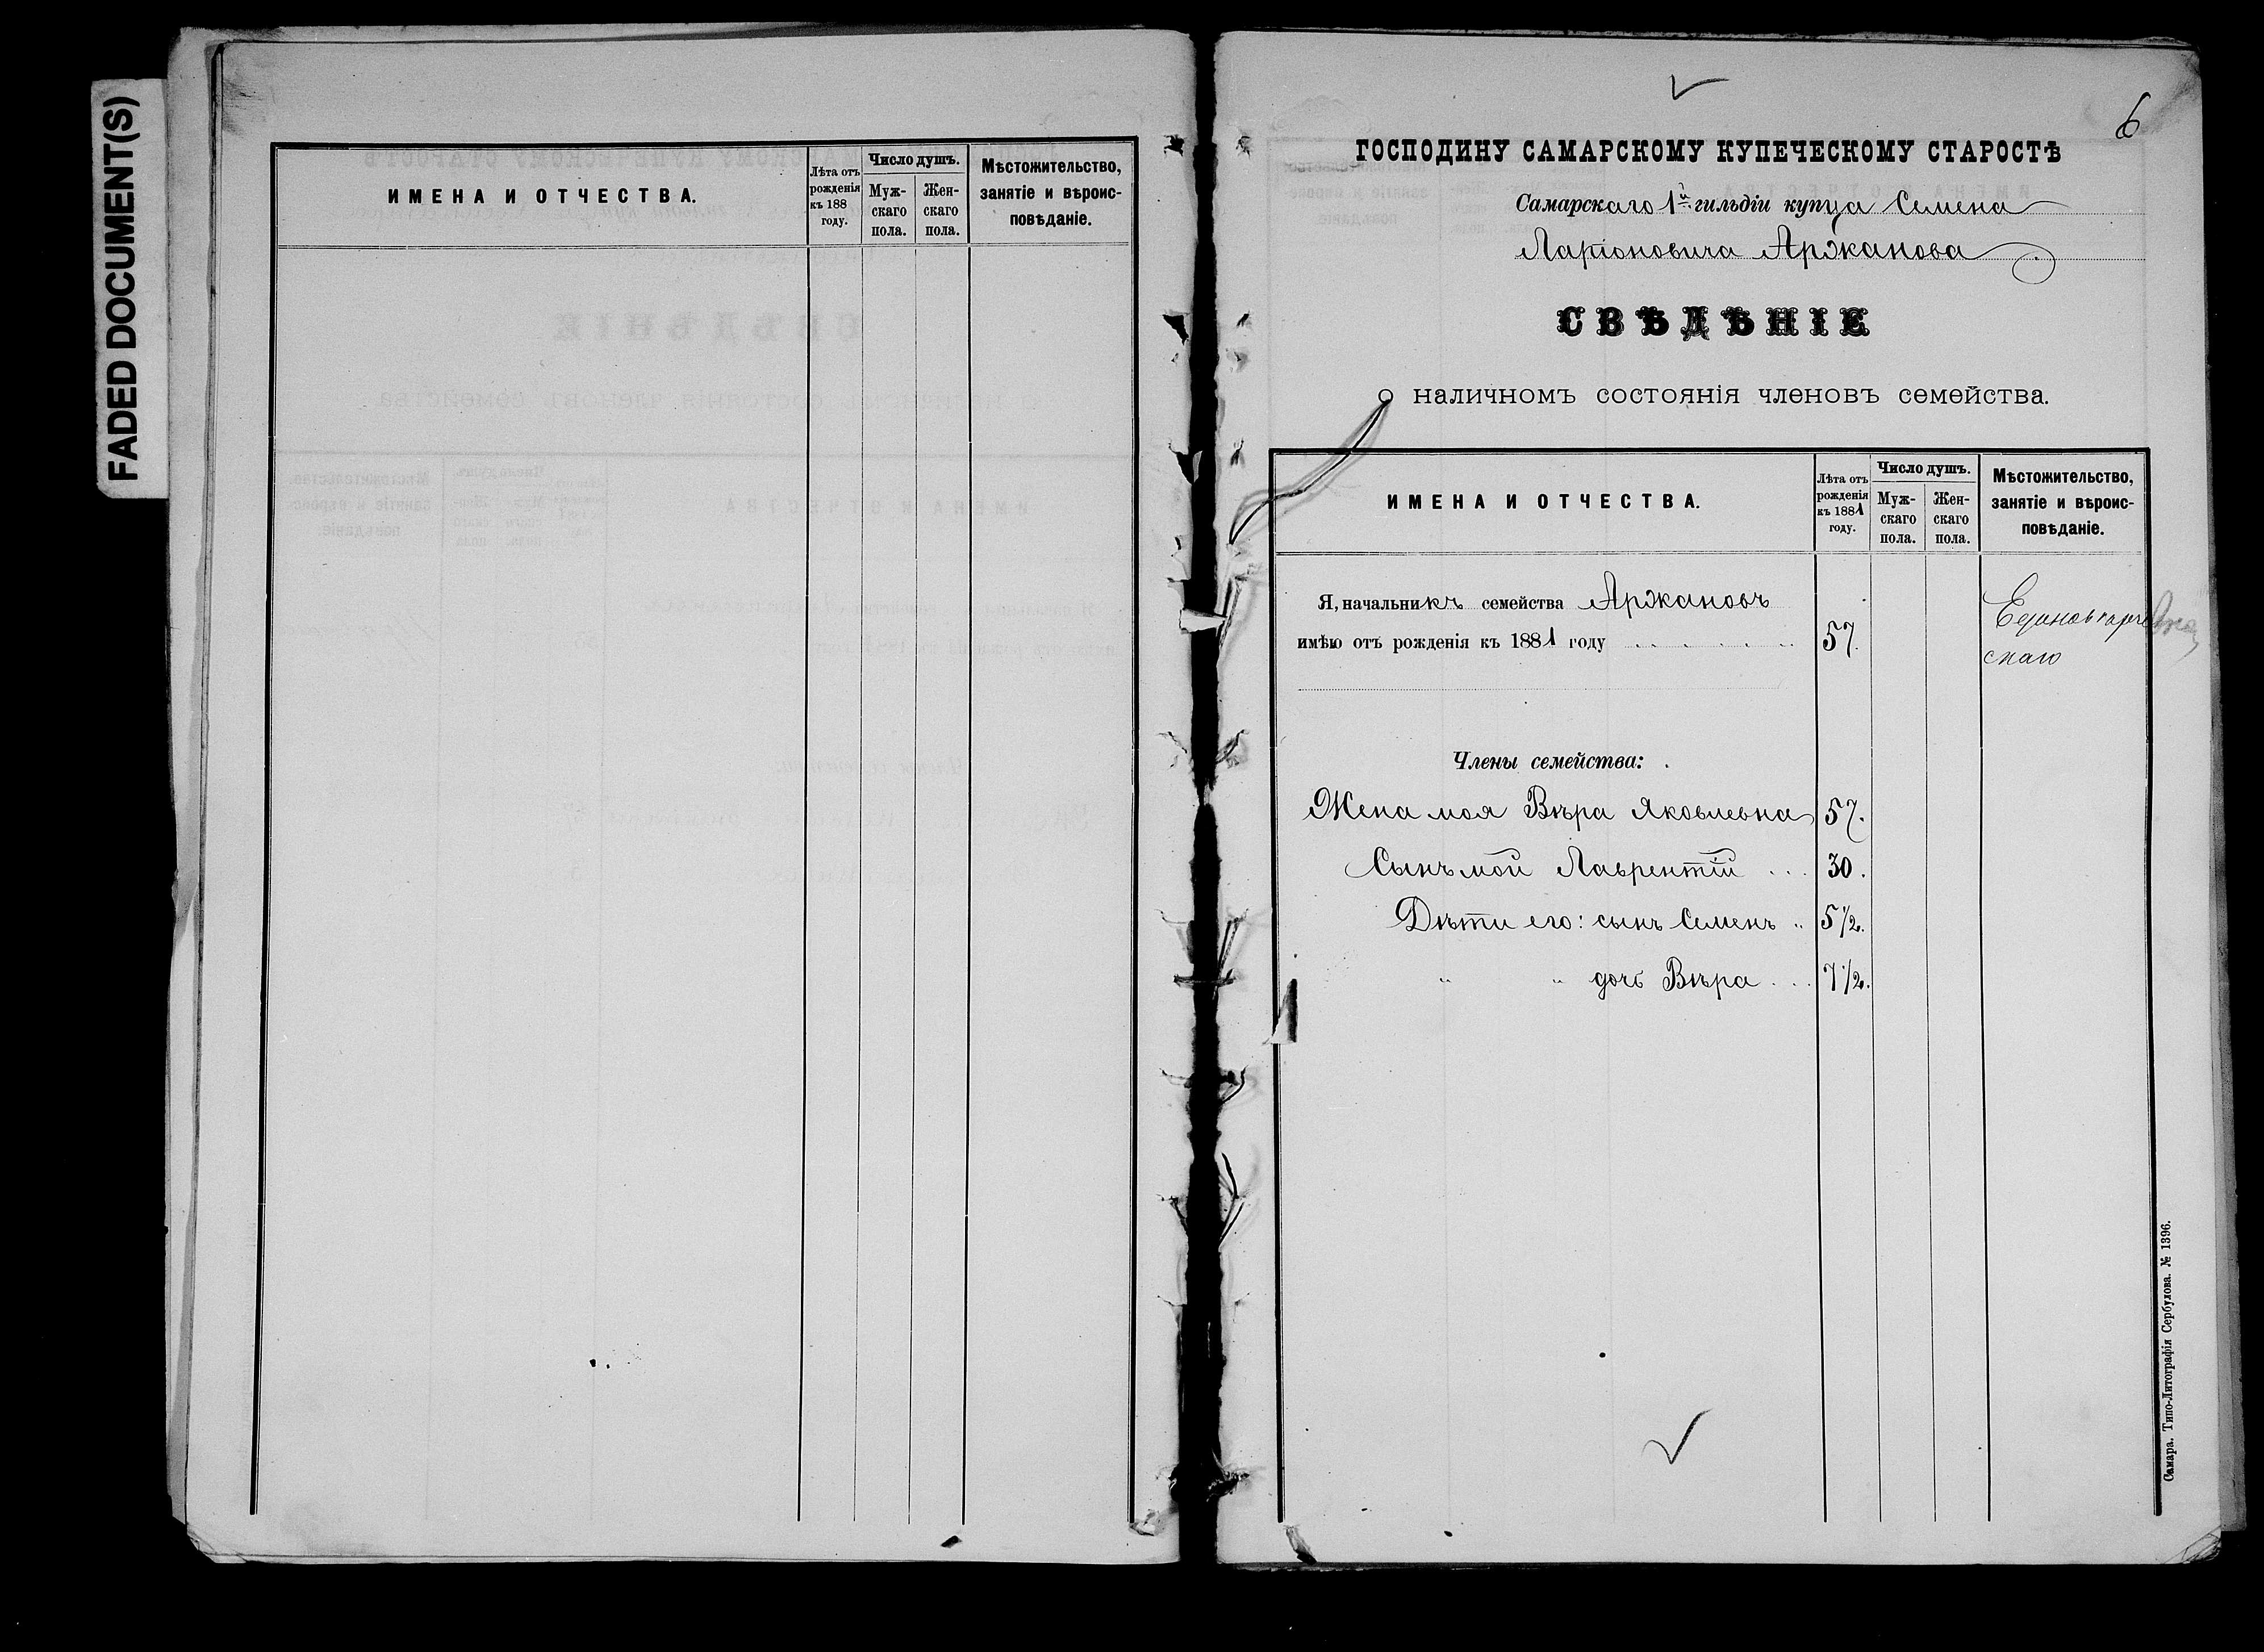 FADED DOCUMENT(S)
ИМЕНА И ОТЧЕСТВА.
Лѣта отъ
рожденія
къ 188
году.
Число душъ.
Муж-
скаго
пола.
Жен-
скаго
пола.
Мѣстожительство,
занятіе и вѣроис-
повѣданіе.
6
ГОСПОДИНУ САМАРСКОМУ КУПЕЧЕСКОМУ СТАРОСТѢ
Самарскаго 1й гильдіи купца Семена
Ларіоновича Аржанова
СВѢДѢНІЕ
о наличномъ состоянія членовъ семейства.
ИМЕНА И ОТЧЕСТВА.
Лѣта отъ
рожденія
къ 1881
году.
Число душъ.
Муж-
скаго
пола.
Жен-
скаго
пола.
Мѣстожительство,
занятіе и вѣроис-
повѣданіе.
Я, начальникъ семейства Аржановъ
имѣю отъ рожденія къ 1881 году 57.
скаго
Члены семейства:
Жена моя Вѣра Яковлевна 57.
Сынъ мой Лаврентій ... 30.
Дѣти его: сынъ Семенъ .. 5 1/2.
" " дочь Вѣра ... 7 1/2.
Самара. Типо-Литографія Сербулова. № 1396.